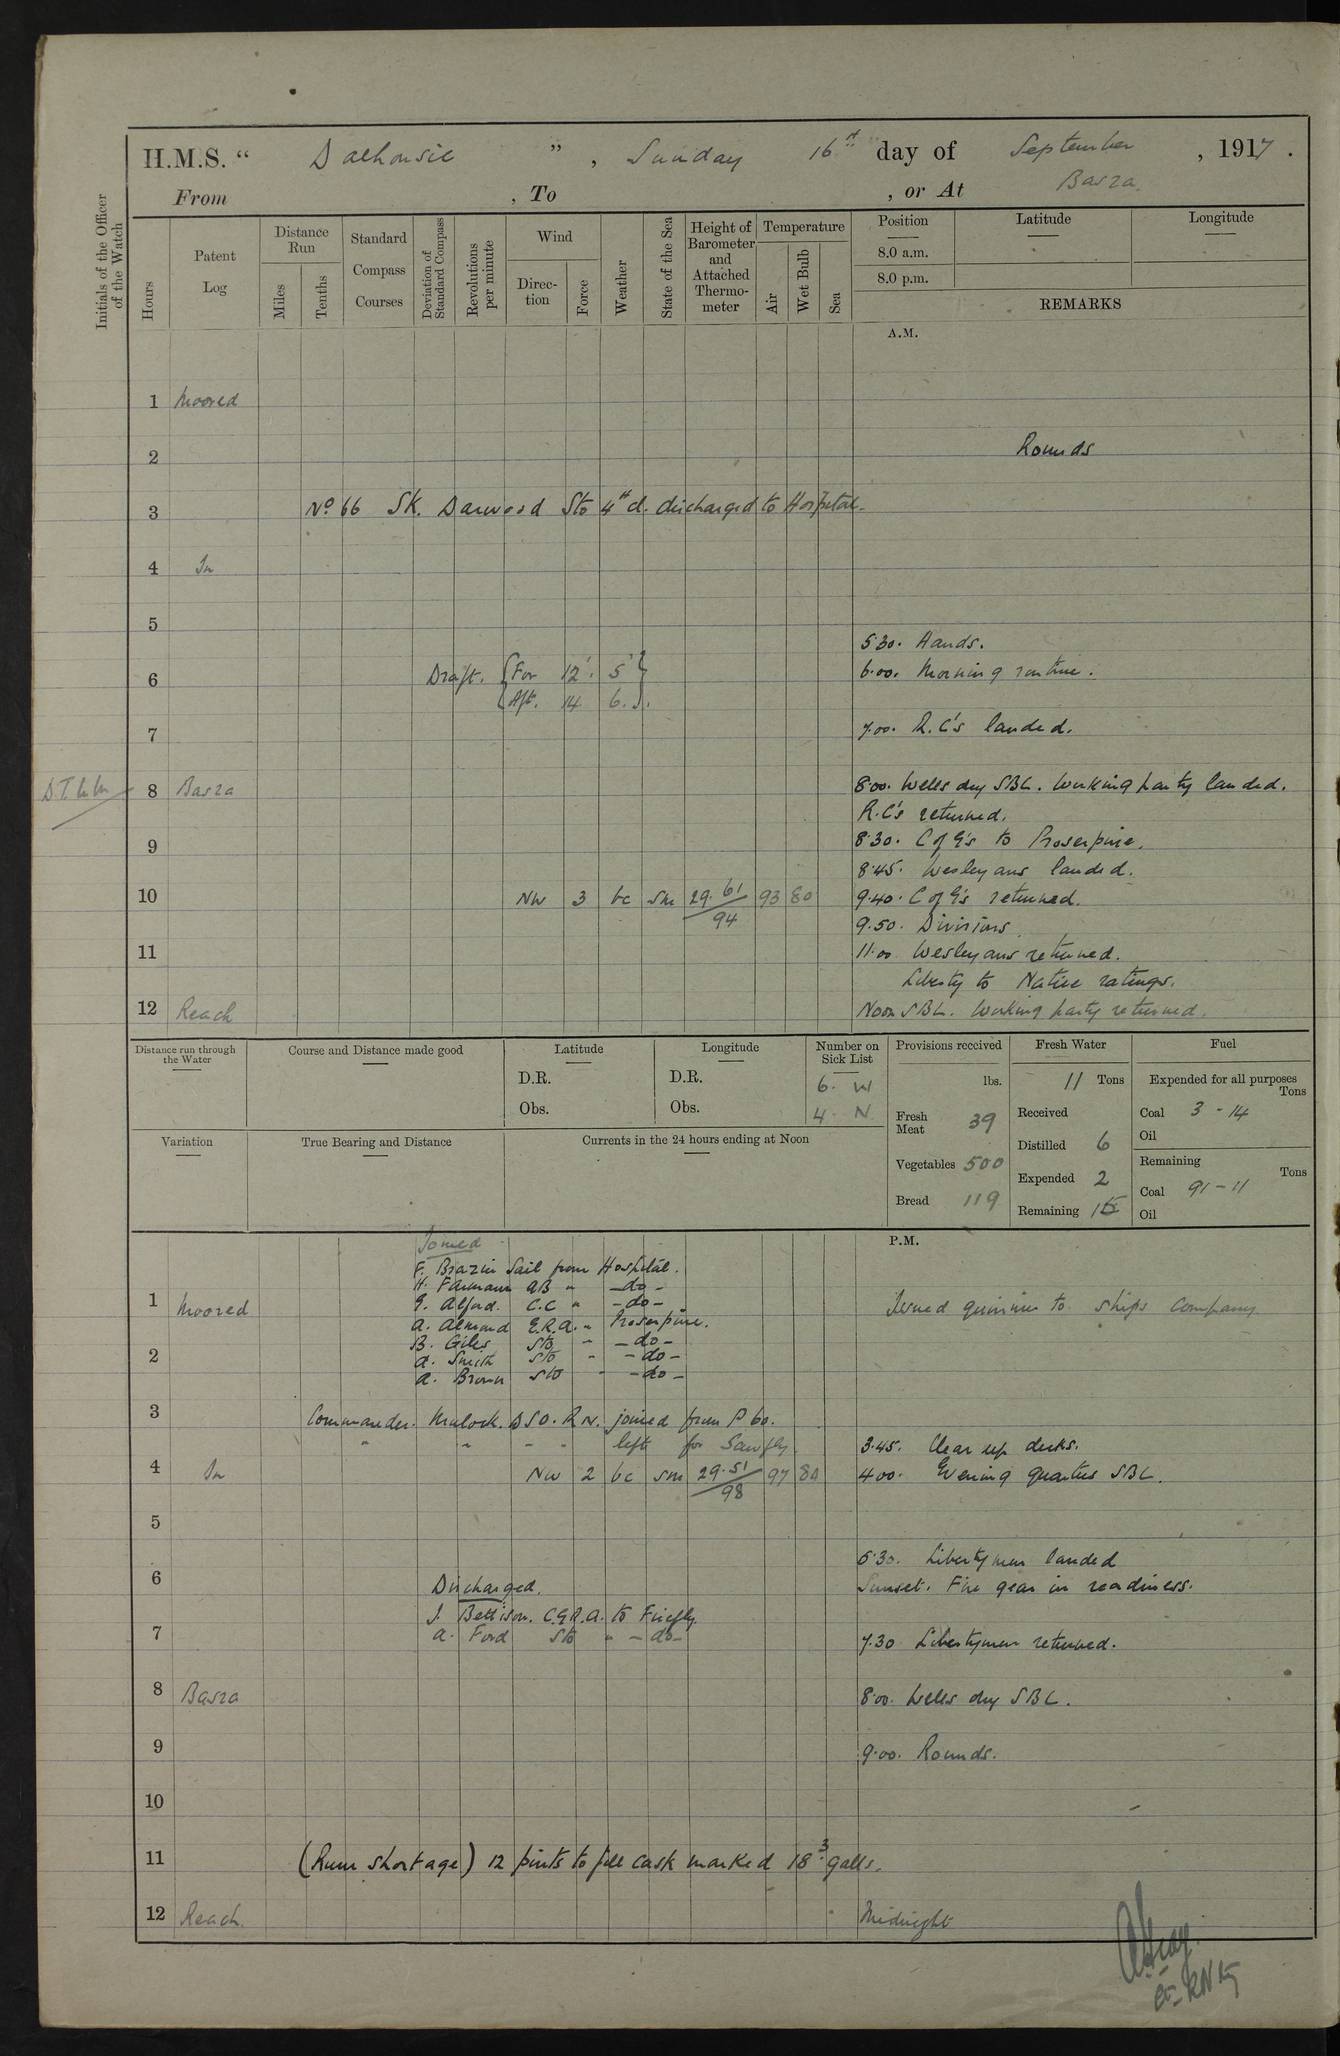 H.M.S. “ Dalhousie ” , Sunday 16th day of September , 1917 .
From , To , or At Basra.
Initials of the Officer of the Watch
Hours
Patent Log
Distance Run
Miles
Tenths
Standard Compass Courses
Deviation of Standard Compass
Revolutions per minute
Wind
Direction
Force
Weather
State of the Sea
Height of Barometer and Attached Thermometer
Temperature
Air
Wet Bulb
Sea
Position
8.0 a.m.
8.0 p.m.
Latitude
Longitude
REMARKS
A.M.
1 Moored
2 Rounds
3 No 66 Sk. Dawood Sto 4th cl. discharged to Hospital.
4 In
5
5.30. Hands.
6 Draft. For 12' 5" 6.00. Morning routine.
Aft. 14 6.
7 7.00. R.C's landed.
8 Basra 8.00. Wells dry SBL. Working party landed.
R.C's returned.
9 8.30. C of E's to Proserpine.
8.45. Wesleyans landed.
10 NW 3 bc sm 29.61/94 93 80 9.40. C of E's returned.
9.50. Divisions
11 11.00 Wesleyans returned.
Liberty to Native ratings.
12 Reach Noon SBL. Working party returned.
Distance run through the Water
Course and Distance made good
Latitude
D.R.
Obs.
Longitude
D.R.
Obs.
Number on Sick List
6. W
4. N
Provisions received
lbs.
Fresh Meat 39
Vegetables 500
Bread 119
Fresh Water
11 Tons
Received
Distilled 6
Expended 2
Remaining 15
Fuel
Expended for all purposes
Tons
Coal 3 - 14
Oil
Remaining
Tons
Coal 91 - 11
Oil
Variation
True Bearing and Distance
Currents in the 24 hours ending at Noon
P.M.
Joined
F. Brazier Sail from Hospital.
H. Farmann AB " - do -
G. Alford. C.C " - do -
A. Almond E.R.A. " Proserpine.
B. Giles Sto " - do -
A. Smith Sto " - do -
A. Brown Sto " - do -
1 Moored Issued quinine to ships company
2
3 Commander. Mulock. DSO. RN. joined from P 60.
" " " " left for Sawfly.
3.45. Clear up decks.
4 In NW 2 bc sm 29.51/98 97 80 4.00. Evening quarters SBL.
5
5.30. Libertymen landed
6 Sunset. Fire gear in readiness.
Discharged.
J. Bettison. C.E.R.A. to Firefly.
A. Ford Sto " - do -
7 7.30 Libertymen returned.
8 Basra 8.00. Wells dry SBL.
9 9.00. Rounds.
10
11 (Rum shortage) 12 pints to fill cask marked 18.3 galls.
12 Reach. Midnight